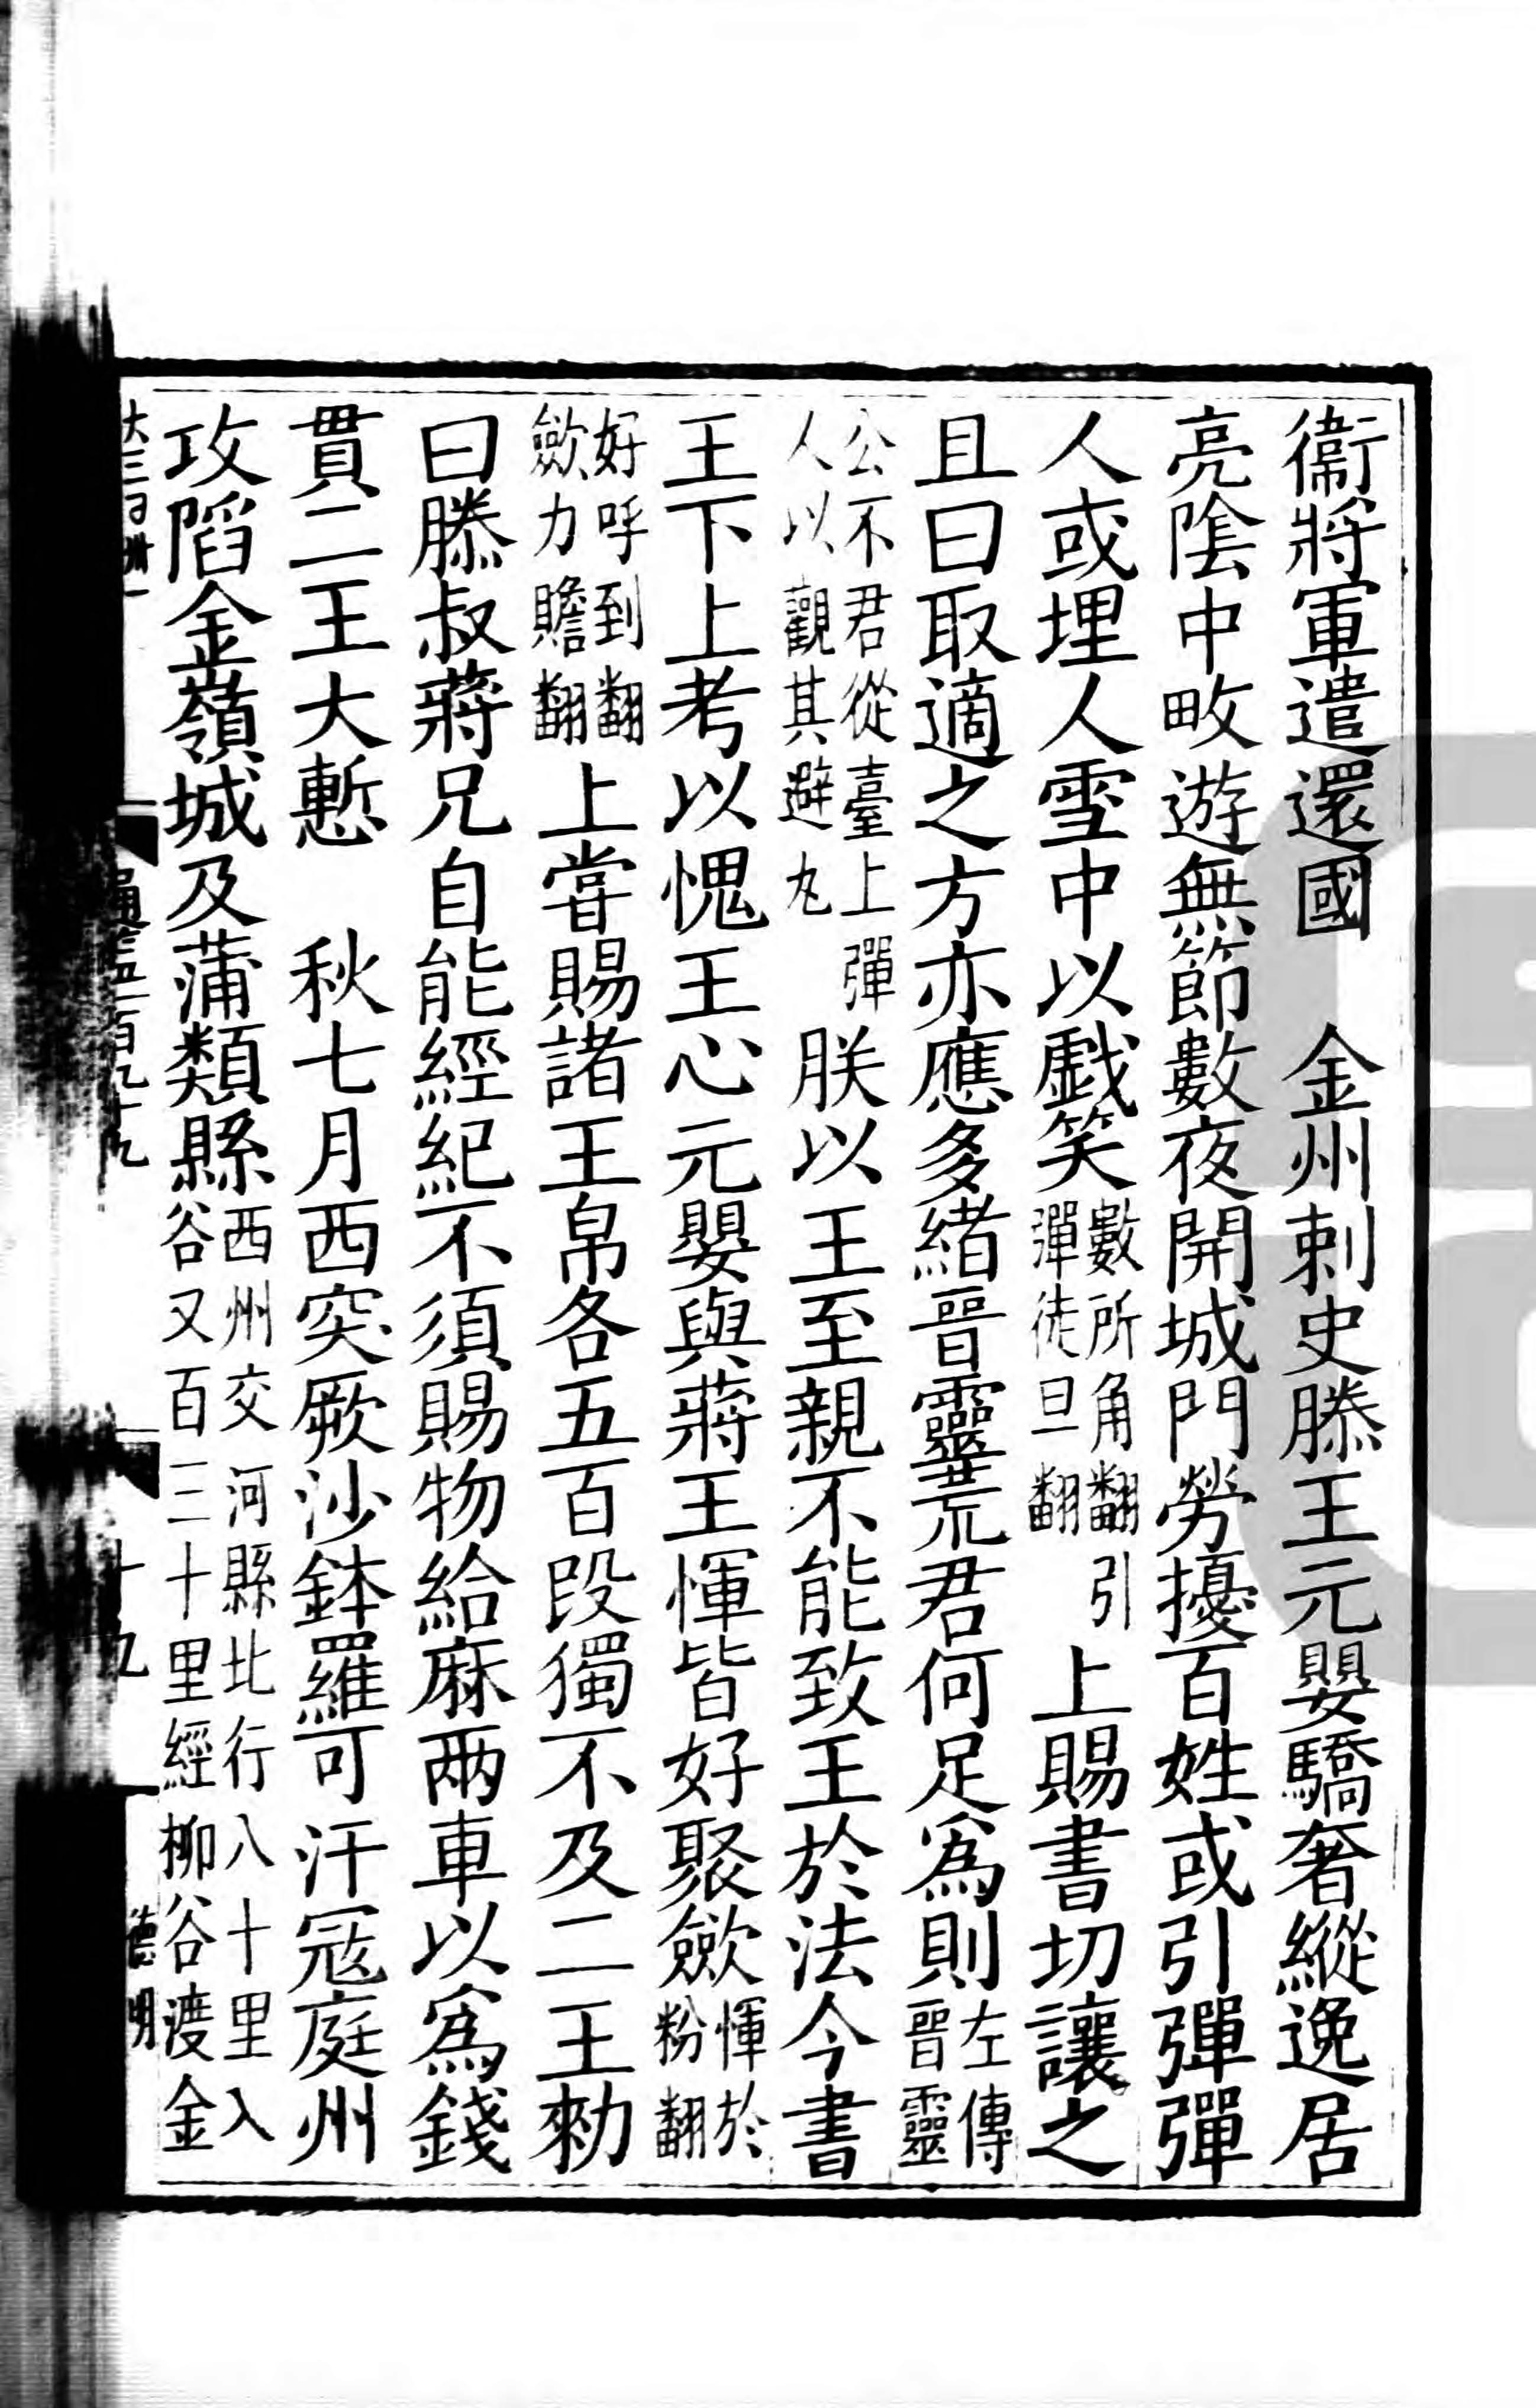 衞將軍遣還國　金州刺史滕王元嬰驕奢縱逸居
亮陰中畋遊無節數夜開城門勞擾百姓或引彈彈
人或埋人雪中以戲笑數所角翻引彈徒旦翻上賜書切讓之
且曰取適之方亦應多緒晉靈荒君何足爲則左傳晉靈
公不君從臺上彈人以觀其避丸朕以王至親不能致王於法今書
王下上考以愧王心元嬰與蔣王惲皆好聚斂惲於粉翻
好呼到翻斂力贍翻上嘗賜諸王帛各五百段獨不及二王勑
曰滕叔蔣兄自能經紀不須賜物給麻兩車以爲錢
貫二王大慙　秋七月西突厥沙鉢羅可汗寇庭州
攻陷金嶺城及蒲類縣西州交河縣北行八十里入谷又百三十里經柳谷渡金
通鑑一百九十九
十九